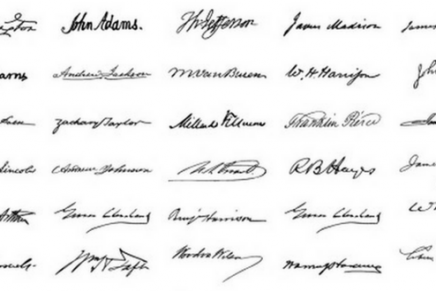 John Adams. Th Jefferson James Madison James
Andrew Jackson M Van Buren W. H. Harrison John
Zachary Taylor Millard Fillmore Franklin Pierce
Lincoln Andrew Johnson R B Hayes James
Arthur Grover Cleveland Benj Harrison Grover Cleveland
Wm H Taft Woodrow Wilson Warren G Harding